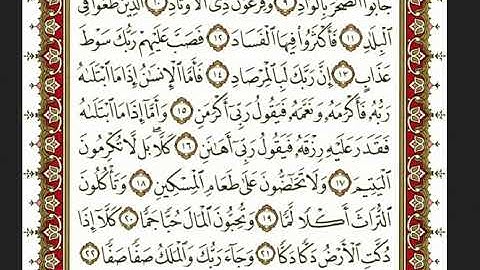 جَابُوا۟ ٱلصَّخْرَ بِٱلْوَادِ ٩ وَفِرْعَوْنَ ذِى ٱلْأَوْتَادِ ١٠ ٱلَّذِينَ طَغَوْا۟ فِى
ٱلْبِلَٰدِ ١١ فَأَكْثَرُوا۟ فِيهَا ٱلْفَسَادَ ١٢ فَصَبَّ عَلَيْهِمْ رَبُّكَ سَوْطَ
عَذَابٍ ١٣ إِنَّ رَبَّكَ لَبِٱلْمِرْصَادِ ١٤ فَأَمَّا ٱلْإِنسَٰنُ إِذَا مَا ٱبْتَلَىٰهُ
رَبُّهُۥ فَأَكْرَمَهُۥ وَنَعَّمَهُۥ فَيَقُولُ رَبِّىٓ أَكْرَمَنِ ١٥ وَأَمَّآ إِذَا مَا ٱبْتَلَىٰهُ
فَقَدَرَ عَلَيْهِ رِزْقَهُۥ فَيَقُولُ رَبِّىٓ أَهَٰنَنِ ١٦ كَلَّا ۖ بَل لَّا تُكْرِمُونَ
ٱلْيَتِيمَ ١٧ وَلَا تَحَٰٓضُّونَ عَلَىٰ طَعَامِ ٱلْمِسْكِينِ ١٨ وَتَأْكُلُونَ
ٱلتُّرَاثَ أَكْلًا لَّمًّا ١٩ وَتُحِبُّونَ ٱلْمَالَ حُبًّا جَمًّا ٢٠ كَلَّآ إِذَا
دُكَّتِ ٱلْأَرْضُ دَكًّا دَكًّا ٢١ وَجَآءَ رَبُّكَ وَٱلْمَلَكُ صَفًّا صَفًّا ٢٢